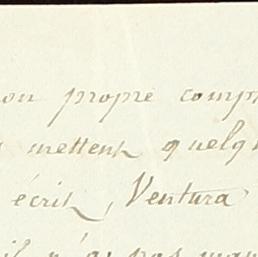 on propre comp
mettent quelq
écrit, Ventura
il n'ai pas man